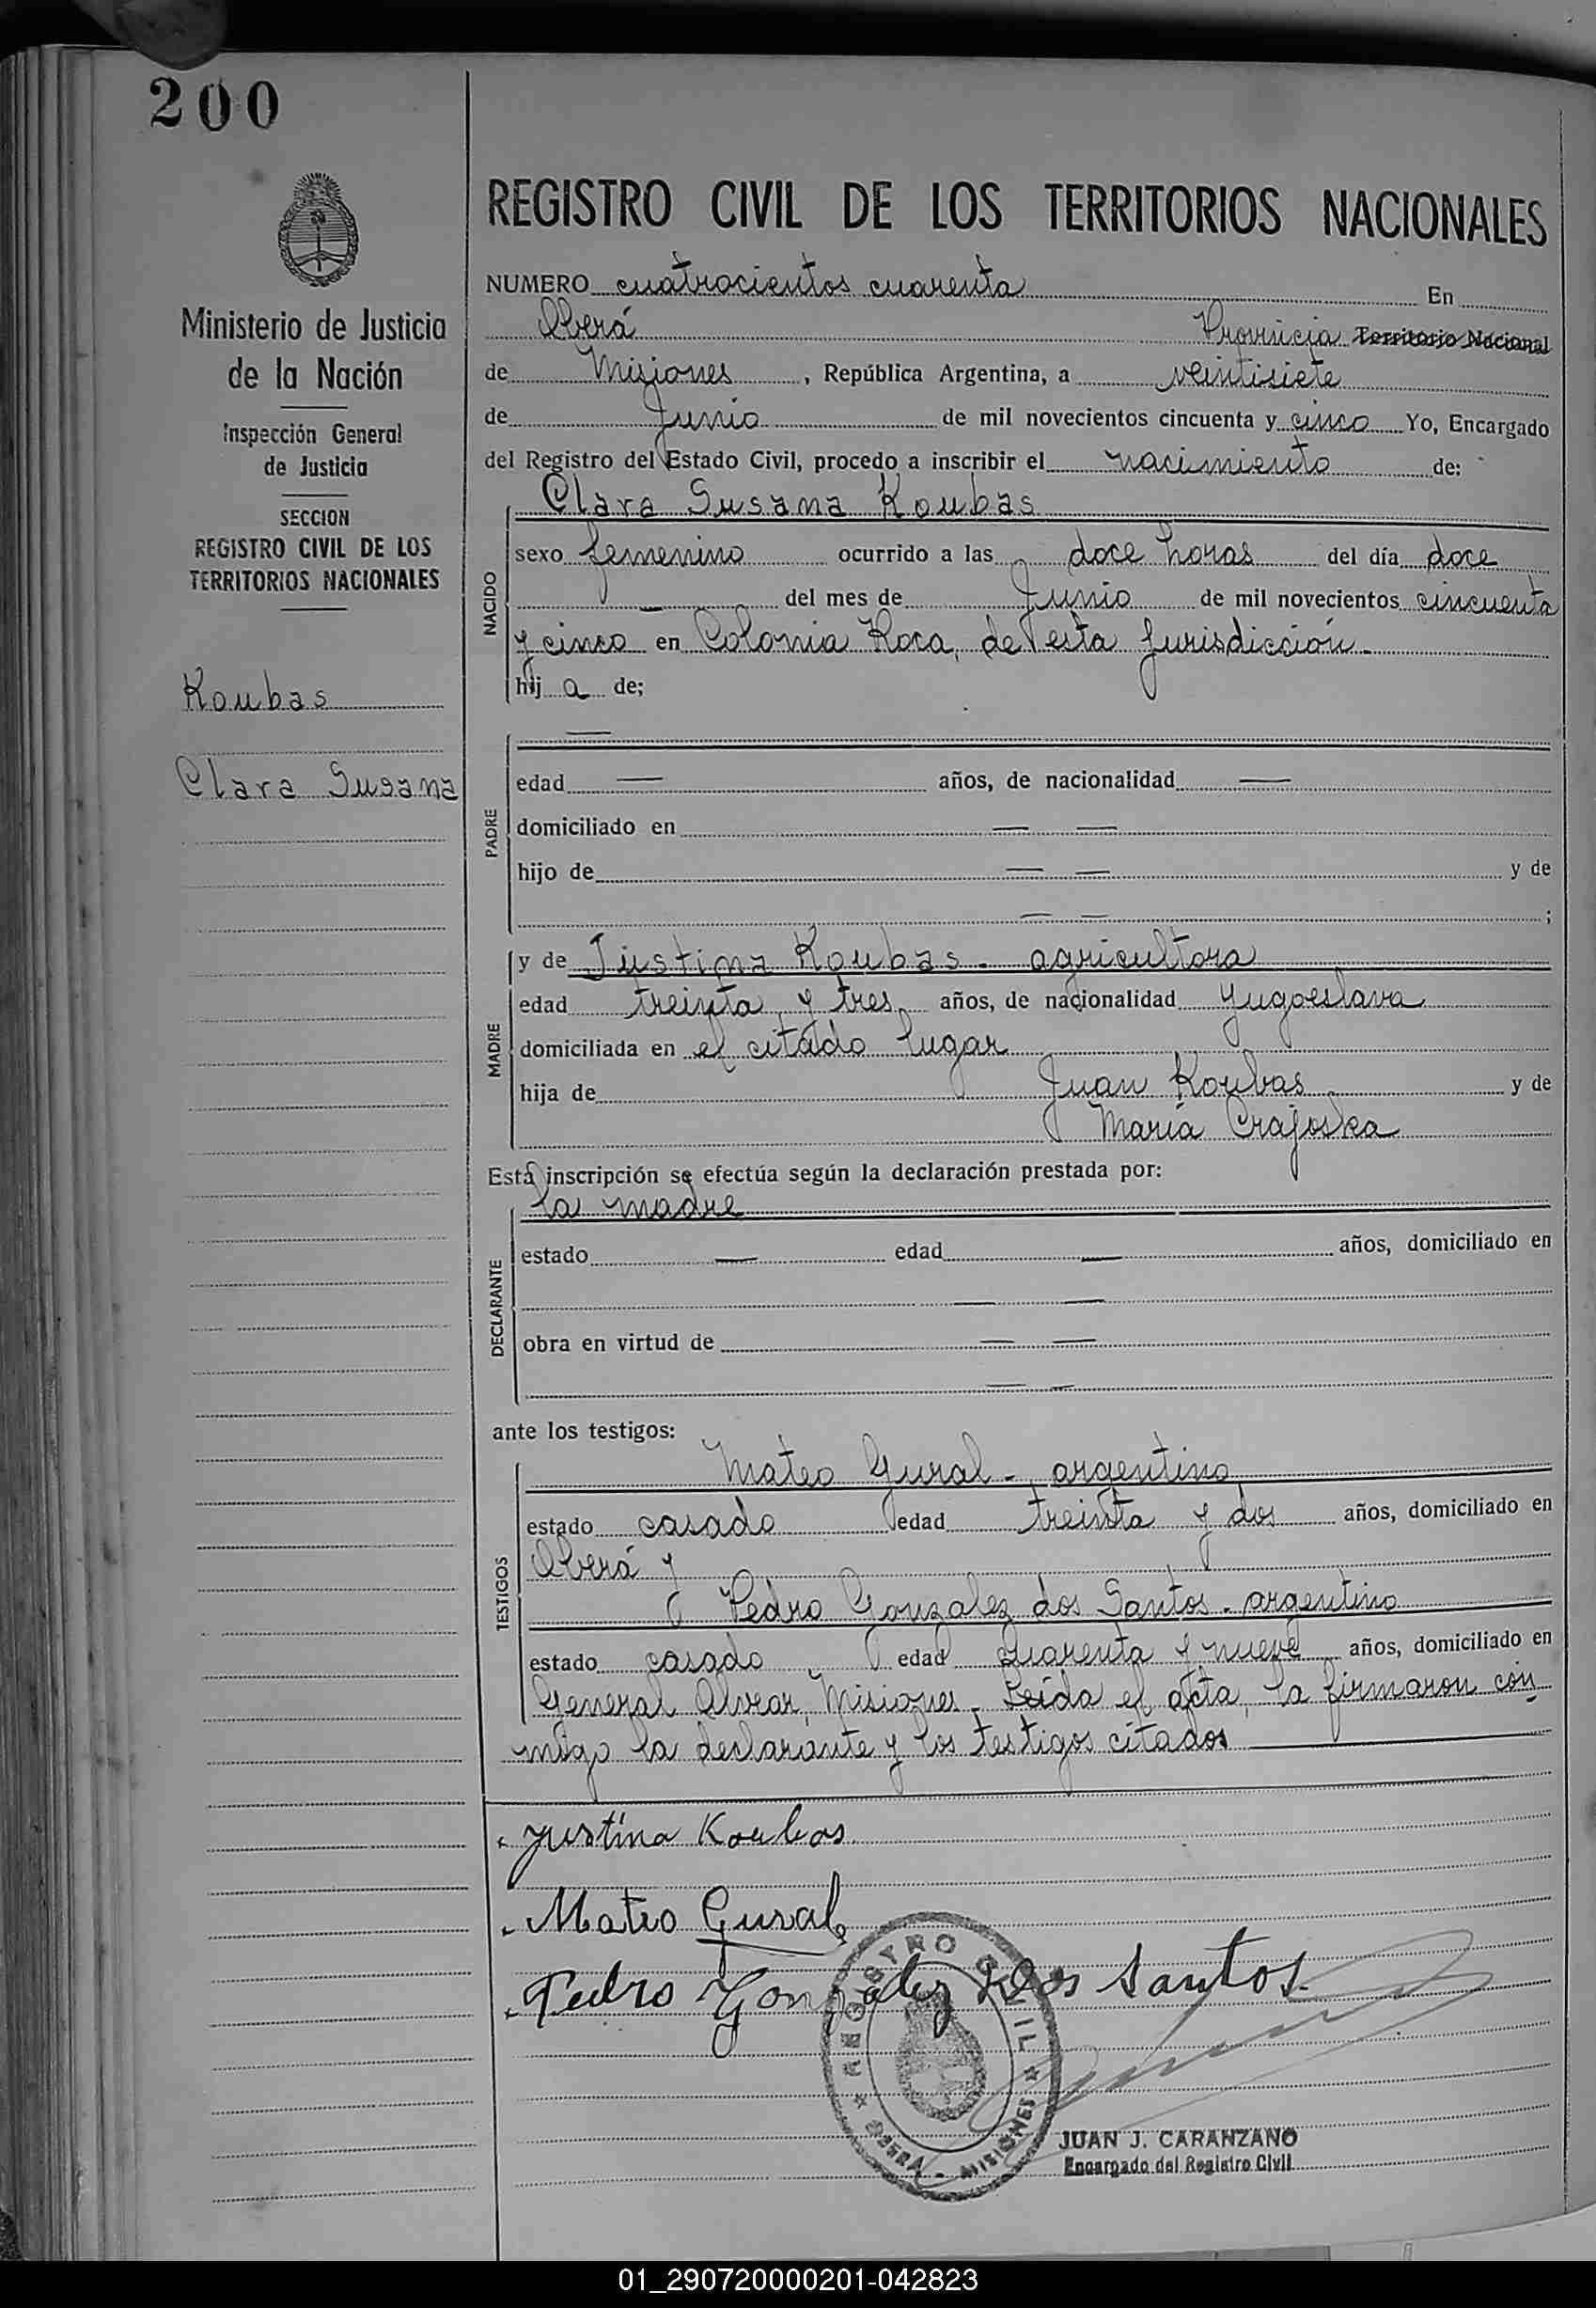 200
REGISTRO CIVIL DE LOS TERRITORIOS NACIONALES
Ministerio de Justicia
de la Nación
Inspección General
de Justicia
SECCION
REGISTRO CIVIL DE LOS
TERRITORIOS NACIONALES
Koubas
Clara Susana
NUMERO cuatrocientos cuarenta En
Oberá Provincia Territorio Nacional
de Misiones, República Argentina, a veintisiete
de Junio de mil novecientos cincuenta y cinco Yo, Encargado
del Registro del Estado Civil, procedo a inscribir el nacimiento de:
Clara Susana Koubas
NACIDO
sexo femenino ocurrido a las doce horas del día doce
— del mes de Junio de mil novecientos cincuenta
y cinco en Colonia Roca, de esta Jurisdicción.-
hij a de;
—
PADRE
edad — años, de nacionalidad —
domiciliado en — —
hijo de — — y de
— — ;
MADRE
y de Justina Koubas - agricultora
edad treinta y tres años, de nacionalidad Yugoeslava
domiciliada en el citado lugar
hija de Juan Koubas y de
María Crajoska
Esta inscripción se efectúa según la declaración prestada por:
la madre
DECLARANTE
estado — edad — años, domiciliado en
— —
obra en virtud de — —
— —
ante los testigos:
TESTIGOS
Mateo Gural - argentino
estado casado edad treinta y dos años, domiciliado en
Oberá y
Pedro Gonzalez dos Santos - argentino
estado casado, edad cuarenta y nueve años, domiciliado en
General Alvear, Misiones - Leída el acta, la firmaron con
migo la declarante y los testigos citados
Justina Koubas
Mateo Gural
Pedro Gonzalez Dos Santos
REGISTRO CIVIL
OBERA - MISIONES
JUAN J. CARANZANO
Encargado del Registro Civil
01_290720000201-042823